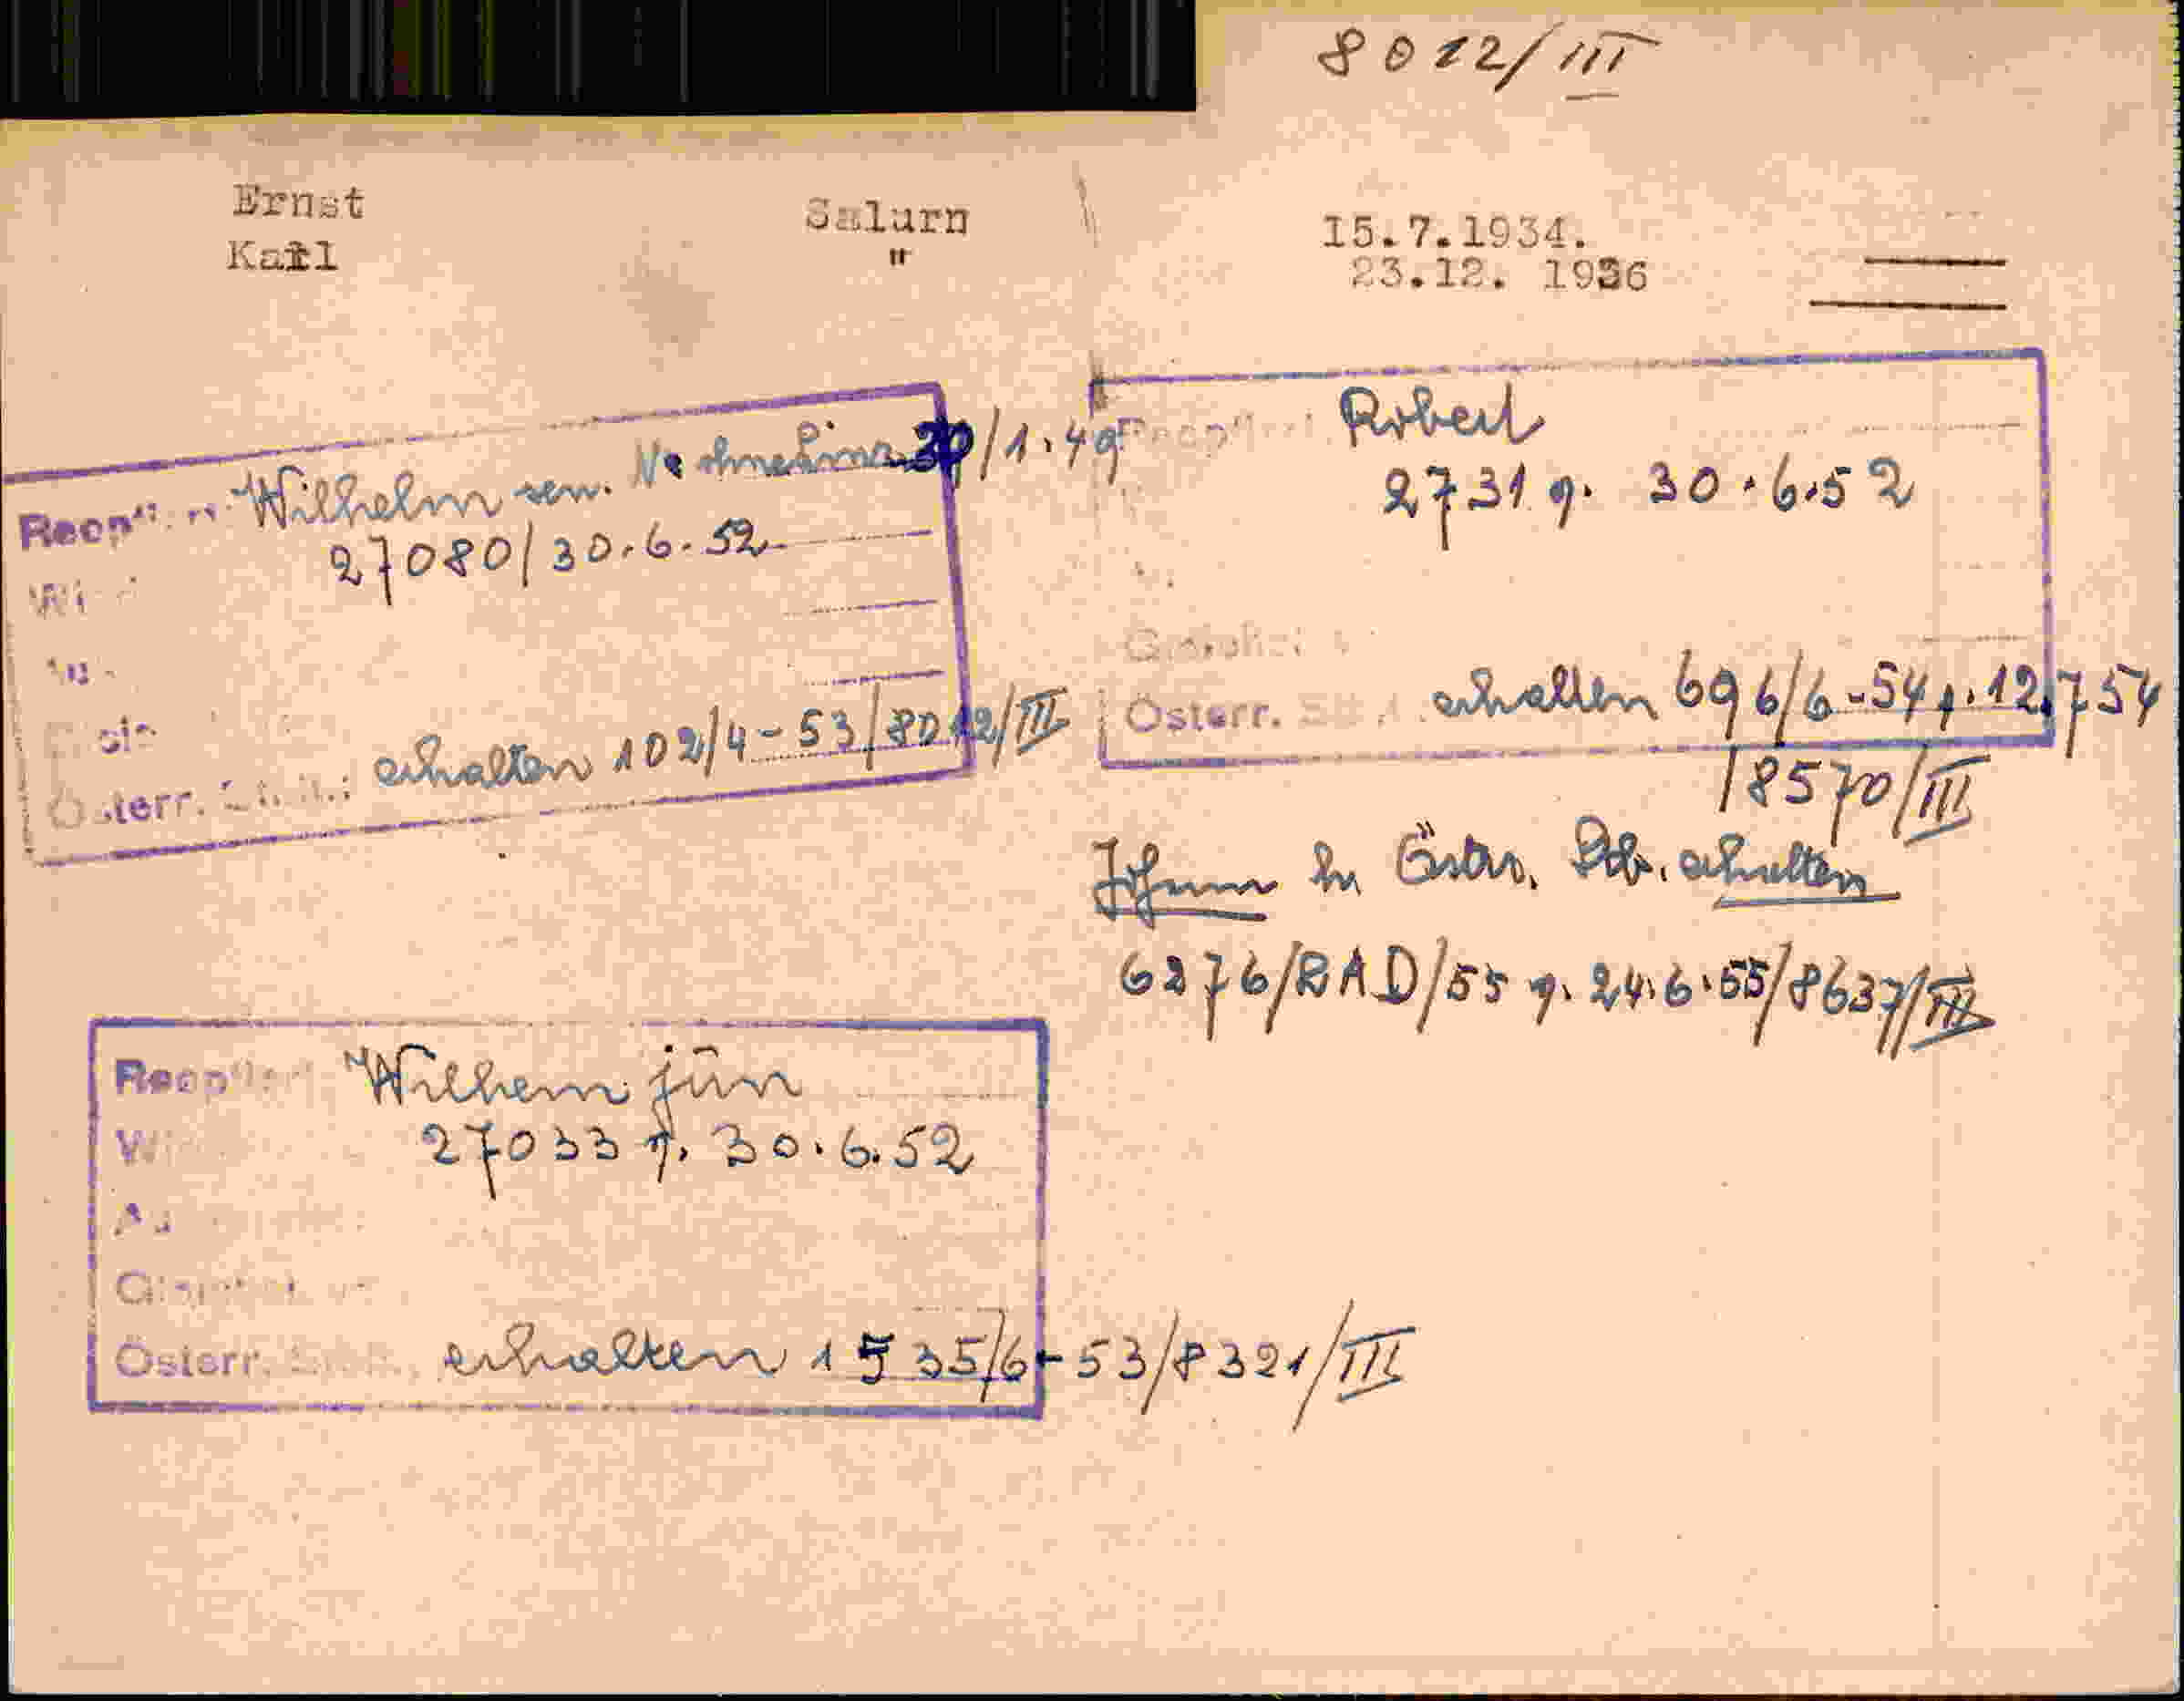 8012/III
Ernst Salurn 15.7.1934.
Karl " 23.12. 1936
Wilhelm sen. 30/1.49
27080/30.6.52
Österr. erhalten 102/4-53/8012/III
Robert
2731 g. 30.6.52
Österr. erhalten 696/6-54 v. 12.7 54
/8570/III
Johann Österr. Stb. erhalten
6276/RAD/55 v. 24.6.55/8637/III
Wilhem jun
27033 v. 30.6.52
Österr. erhalten 1535/6-53/8321/III